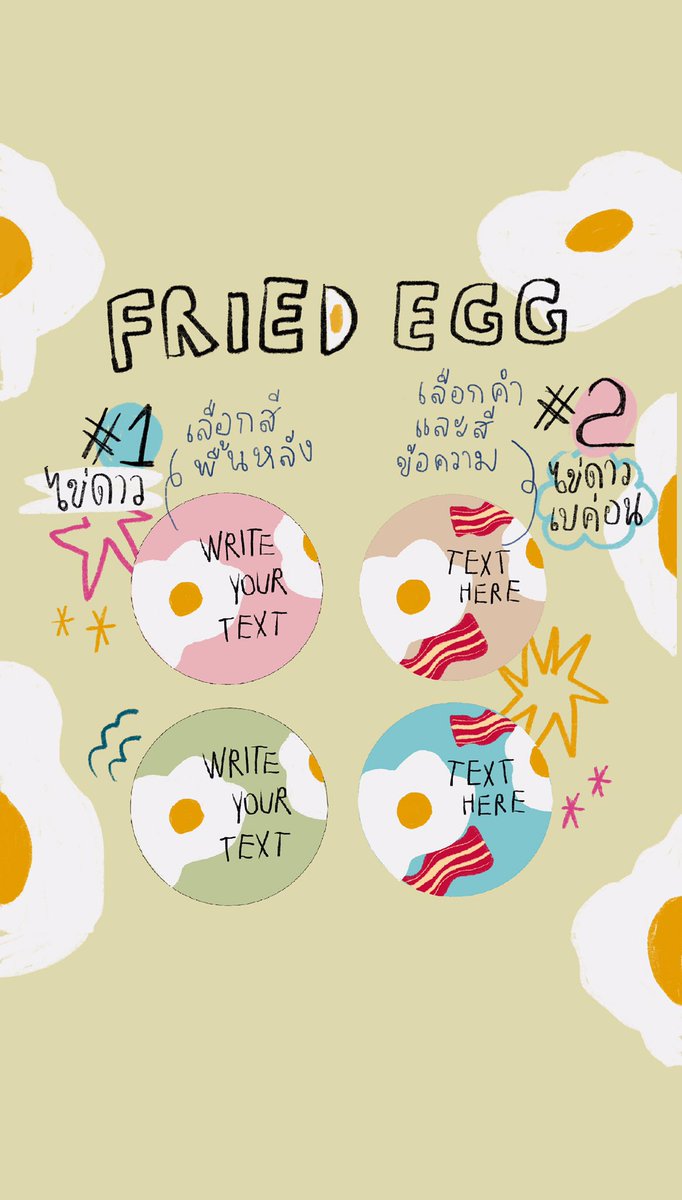 FRIED EGG
#1
ไข่ดาว
เลือกสี
พื้นหลัง
เลือกคำ
และสี
ข้อความ
#2
ไข่ดาว
เบค่อน
WRITE
YOUR
TEXT
TEXT
HERE
WRITE
YOUR
TEXT
TEXT
HERE